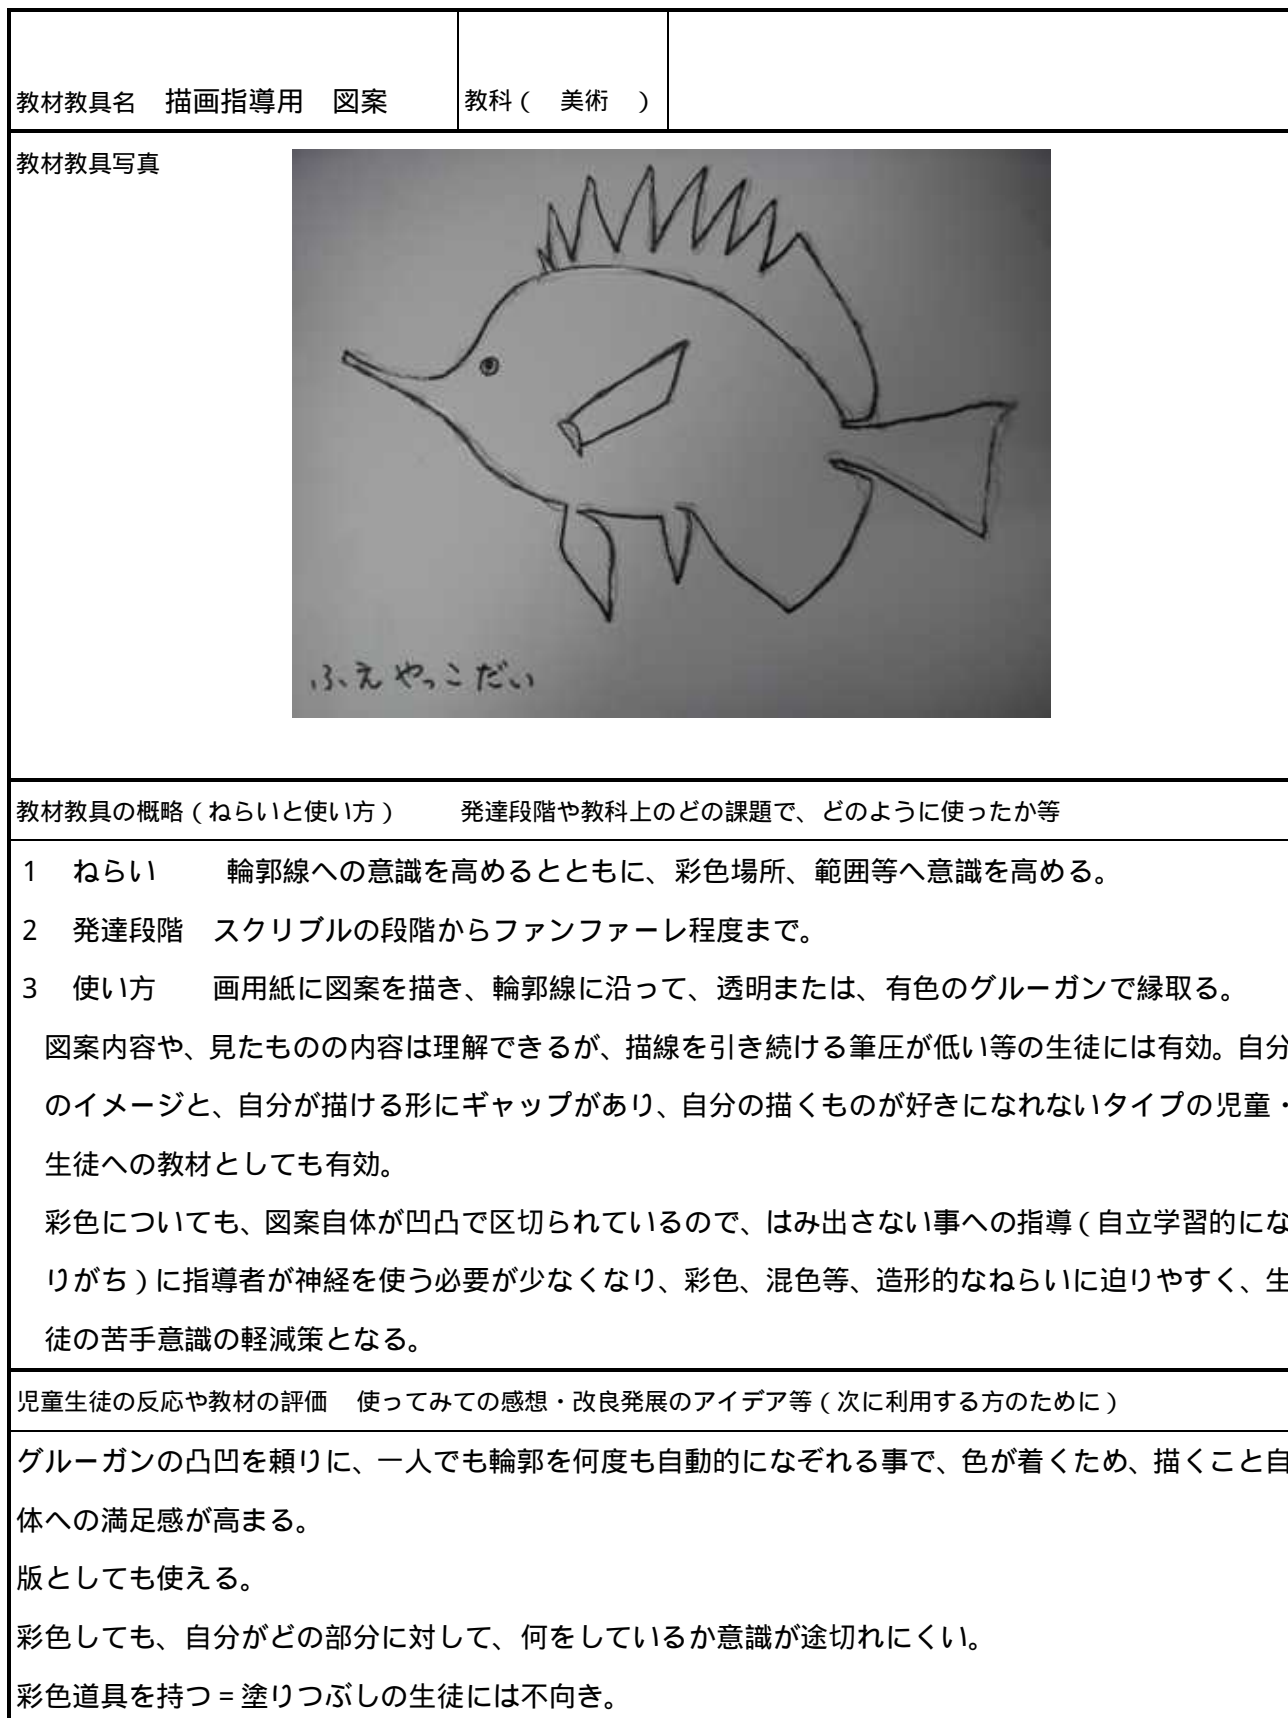 教材教具名　描画指導用　図案　教科（　美術　）
教材教具写真
ふえやっこだい
教材教具の概略（ねらいと使い方）　　発達段階や教科上のどの課題で、どのように使ったか等
1　ねらい　　輪郭線への意識を高めるとともに、彩色場所、範囲等へ意識を高める。
2　発達段階　スクリブルの段階からファンファーレ程度まで。
3　使い方　　画用紙に図案を描き、輪郭線に沿って、透明または、有色のグルーガンで縁取る。
図案内容や、見たものの内容は理解できるが、描線を引き続ける筆圧が低い等の生徒には有効。自分
のイメージと、自分が描ける形にギャップがあり、自分の描くものが好きになれないタイプの児童・
生徒への教材としても有効。
彩色についても、図案自体が凹凸で区切られているので、はみ出さない事への指導（自立学習的にな
りがち）に指導者が神経を使う必要が少なくなり、彩色、混色等、造形的なねらいに迫りやすく、生
徒の苦手意識の軽減策となる。
児童生徒の反応や教材の評価　使ってみての感想・改良発展のアイデア等（次に利用する方のために）
グルーガンの凸凹を頼りに、一人でも輪郭を何度も自動的になぞれる事で、色が着くため、描くこと自
体への満足感が高まる。
版としても使える。
彩色しても、自分がどの部分に対して、何をしているか意識が途切れにくい。
彩色道具を持つ＝塗りつぶしの生徒には不向き。